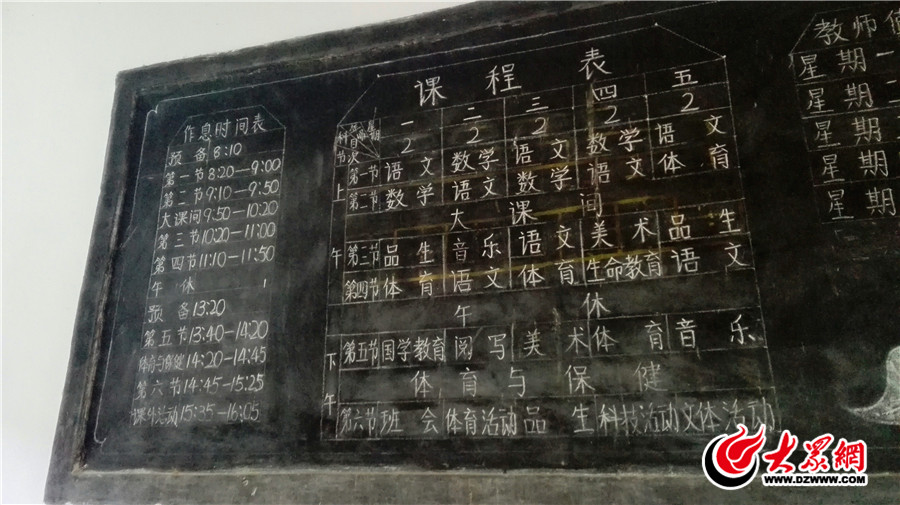 作息时间表
预 备 8:10
第一节 8:20—9:00
第二节 9:10—9:50
大课间 9:50—10:20
第三节 10:20—11:00
第四节 11:10—11:50
午 休
预 备 13:20
第五节 13:40—14:20
体育与保健 14:20—14:45
第六节 14:45—15:25
课外活动 15:35—16:05
课 程 表
一 二 三 四 五
2 2 2 2 2
节 次 科 目 星 期
上 第一节 语文 数学 语文 数学 语文
第二节 数学 语文 数学 语文 体育
大 课 间
午 第三节 品生 音乐 语文 美术 品生
第四节 体育 语文 体育 生命教育 语文
午 休
下 第五节 国学教育 阅写 美术 体育 音乐
体 育 与 保 健
午 第六节 班会 体育活动 品生 科技活动 文体活动
教师值
星期一
星期二
星期
星期
星期
大众網
WWW.DZWWW.COM